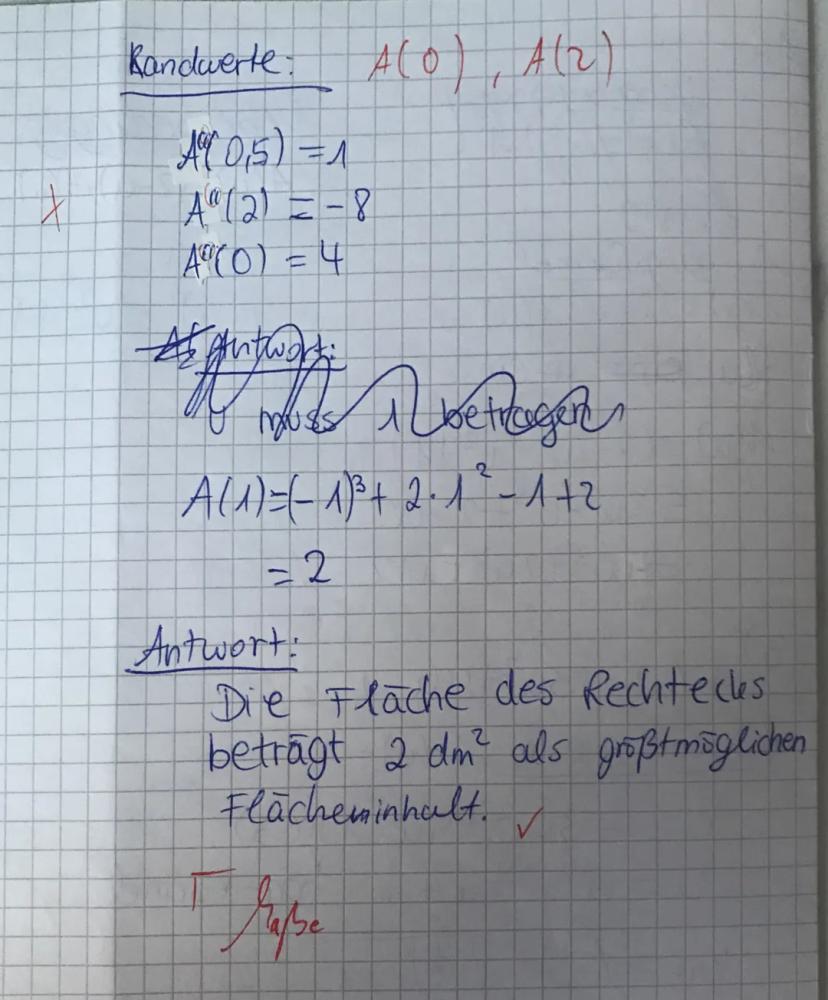 Randwerte: A(0), A(2)
A''(0,5) = 1
X A''(2) = -8
A''(0) = 4
Antwort:
muss 1 betragen
A(1)=(-1)³+ 2·1²-1+2
= 2
Antwort:
Die Fläche des Rechtecks
beträgt 2 dm² als größtmöglichen
Flächeninhalt. ✓
Γ Maße